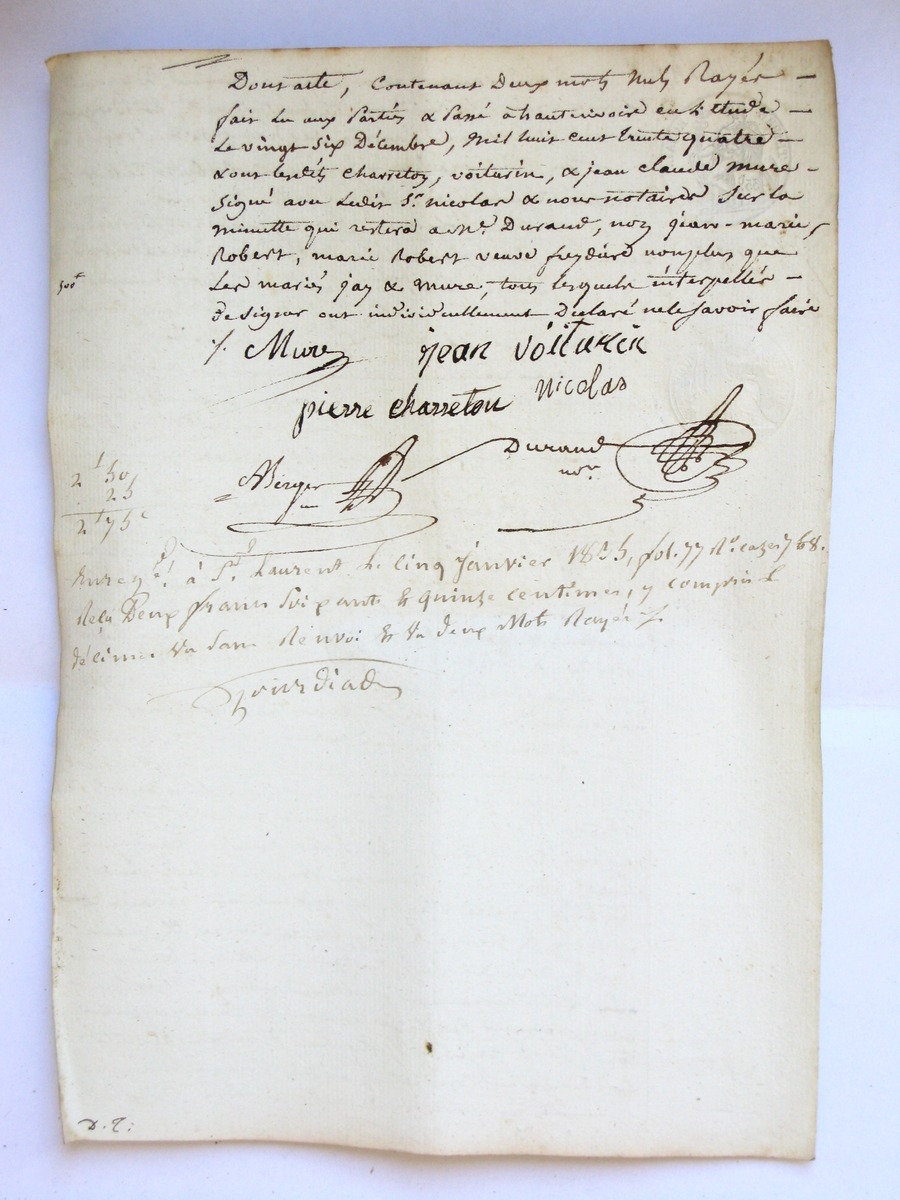 Dont acte, Contenant Deux mots Nuls Rayés —
fait lu aux Parties & Passé à hauterivoire en l'étude —
Le vingt Six Décembre, Mil huit cent trente quatre —
& ont lesdits Charreton, voiturin, & jean claude mure -
Signé avec Ledit Sr. nicolas & nous notaires Sur la
minutte qui restera a Me. Durand, non jean-marie
Robert, marie Robert veuve freydière non plus que
Les mariés jay & mure, tous lesquels interpellés —
de signer ont individuellement Déclaré ne le savoir faire
/. Mure jean voiturin
pierre charreton Nicolas
Durand
nore
Berger
2f 50
25
2f 75c
Enregtré à St. Laurent le cinq Janvier 1835, fol. 77 Ro. cases 7 & 8.
Reçu Deux francs Soixante & quinze centimes, y compris le
décime va Sans Renvoi & va deux Mots Rayés /.
D. T: